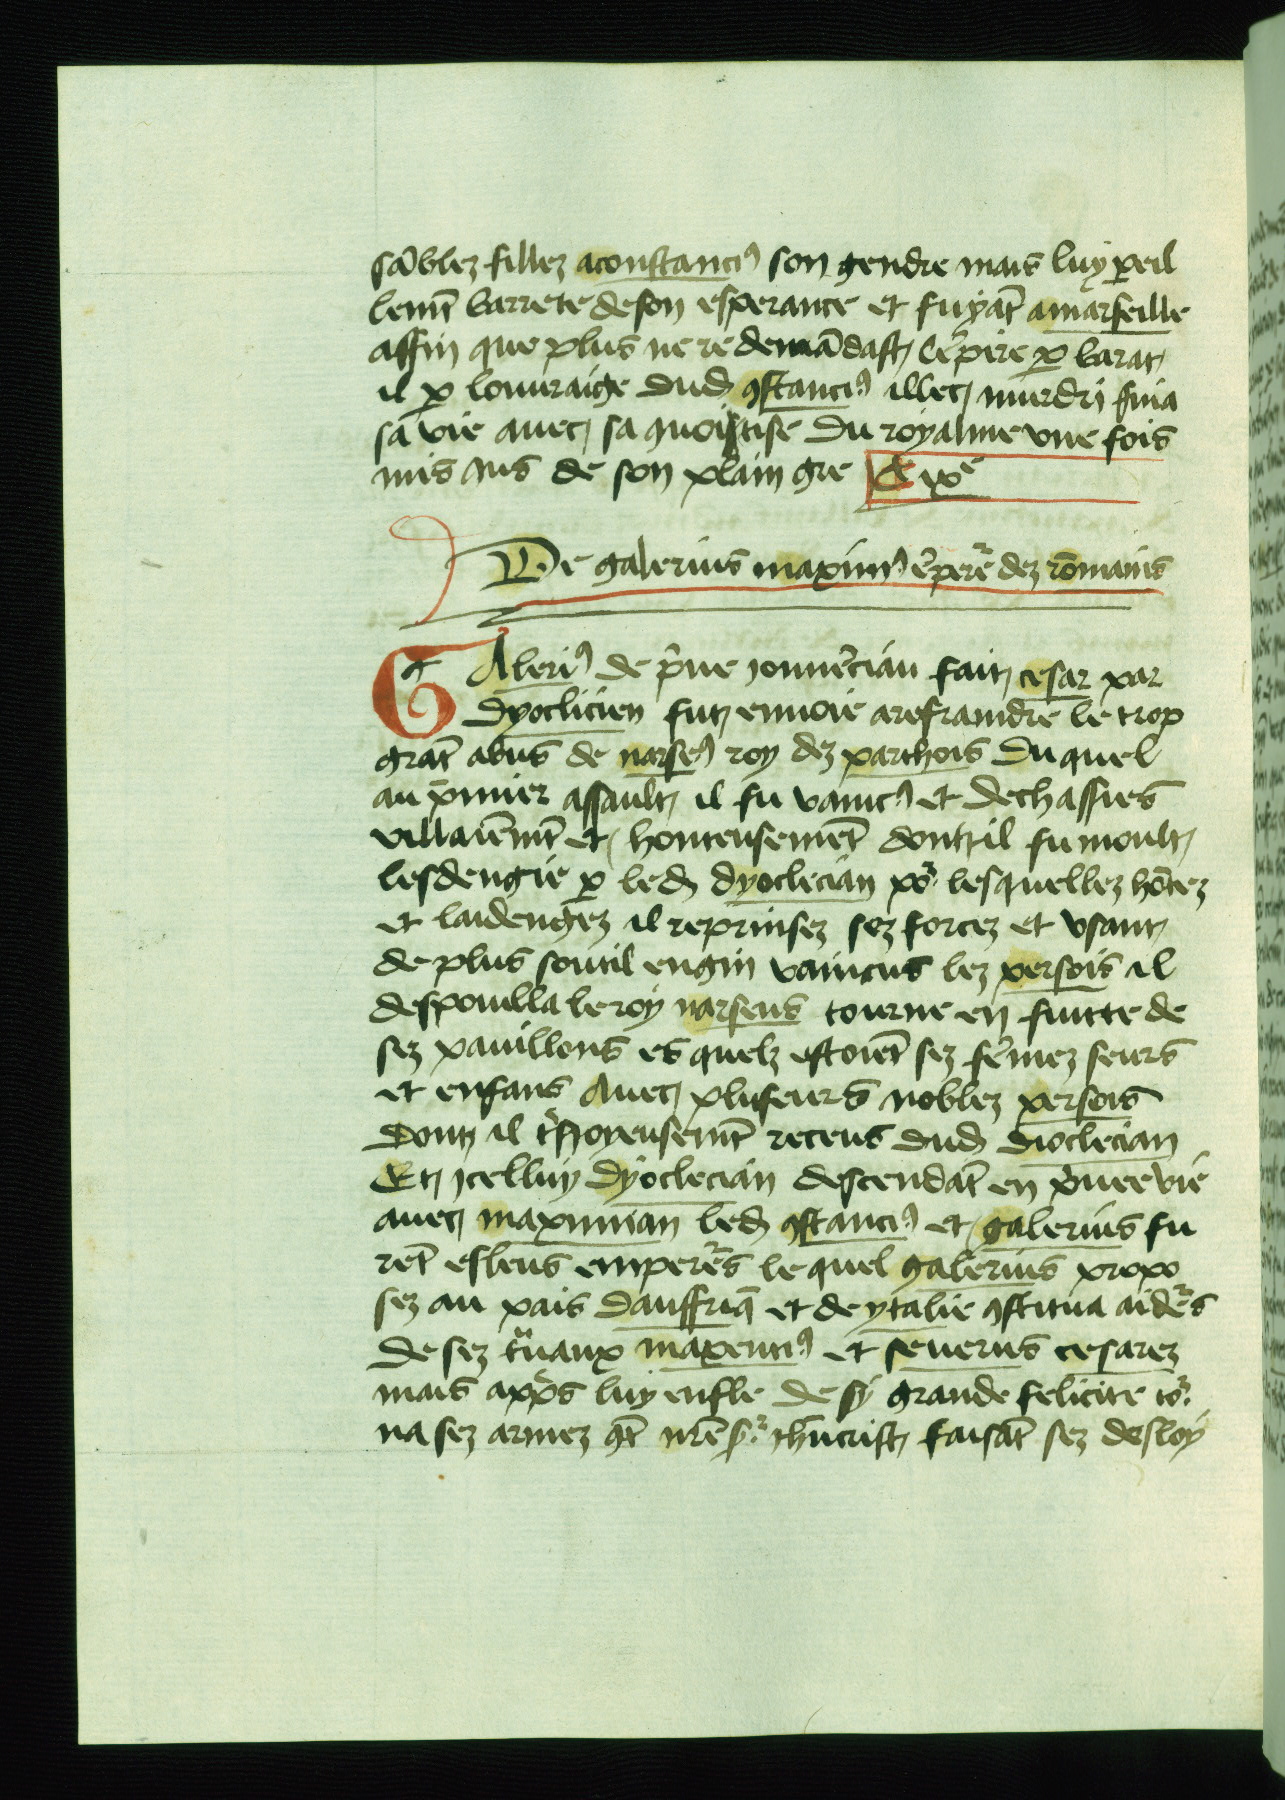 sãblez fillez aconstanciꝰ son gendre mais luy ꝑeil
lemt̃ barrete deson esperance et fuyãt amarseille
affin que plus ne re demãdast lẽpire ꝑ barat
il ꝑ louuraige dud ꝯstanciꝰ illec murdri fina
sa vie auec sa quoistise du royalme vne fois
mis ius de son plain gre & ixe
De galerius maximꝰ ẽperẽ dez rõmains
GAleriꝰ de p̃ue iouuẽcian fait cesar par
dyoclicien fut enuoie arefraindre le trop
grãt abus de narseꝰ roy dez parthois duquel
au p̃mier assault il fu vaincꝰ et dechassies
villaiẽmt̃ et honteusemẽt dont il fu moult
lesdengie ꝑ led dyoclecian po᷑ lesquellez hõtez
et laidengez il reprinsez sez forcez et vsant
de plus soutil engin vaincus lez persois il
despouilla le roy narseus tourne en fuitte de
sez pauillons es quelz estoiẽt sez fẽmez seurs
et enfans auec pluseurs noblez persois
dont il ioyeusemt̃ receus dud dioclecian
Et icelluy dyoclecian descendãt en p̃uee vie
auec maximian led ꝯstanciꝰ et galerius fu
rẽt esleus emperẽs le quel galerius propo
sez au pais dauffriq̃ et de ytalie ꝯstitua aidẽs
de sez t̃uaux maxenciꝰ et seuerus cesarez
mais app̃s luy enfle de sy grande felicite to᷑
na sez armez ꝯt̃ nr̃e s᷑ ih̃ucrist faisãt sez desloy